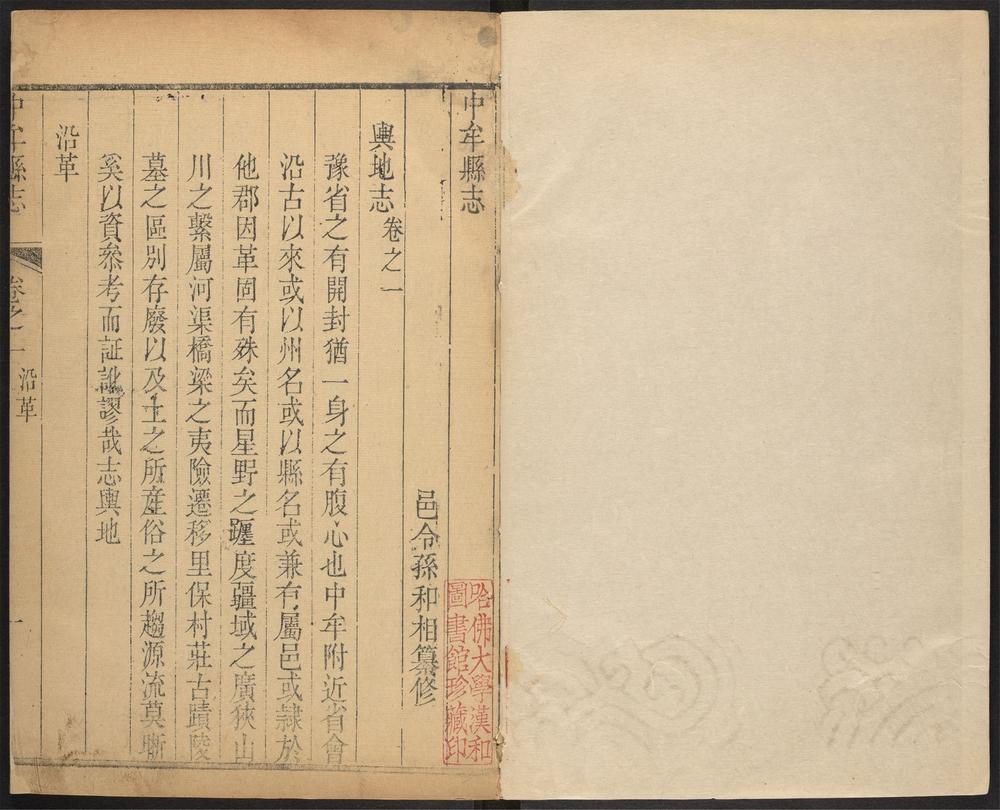 中牟縣志
邑令孫和相纂修
輿地志卷之一
豫省之有開封猶一身之有腹心也中牟附近省會
沿古以來或以州名或以縣名或兼有屬邑或隸於
他郡因革固有殊矣而星野之躔度疆域之廣狹山
川之繫屬河渠橋梁之夷險遷移里保村莊古蹟陵
墓之區別存廢以及土之所產俗之所趨源流莫晰
奚以資叅考而証訛謬哉志輿地
沿革
中牟縣志
卷之一 沿革 一
哈佛大學漢和
圖書館珍藏印